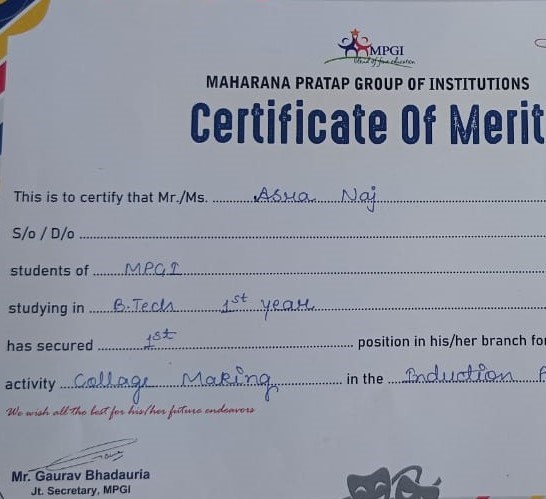 MPGI
MAHARANA PRATAP GROUP OF INSTITUTIONS
Certificate Of Merit
This is to certify that Mr./Ms. Asra Naj
S/o / D/o
students of MPGI
studying in B.Tech 1st year
has secured 1st position in his/her branch for
activity Collage Making in the Induction F
We wish all the best for his/her future endeavors
Mr. Gaurav Bhadauria
Jt. Secretary, MPGI